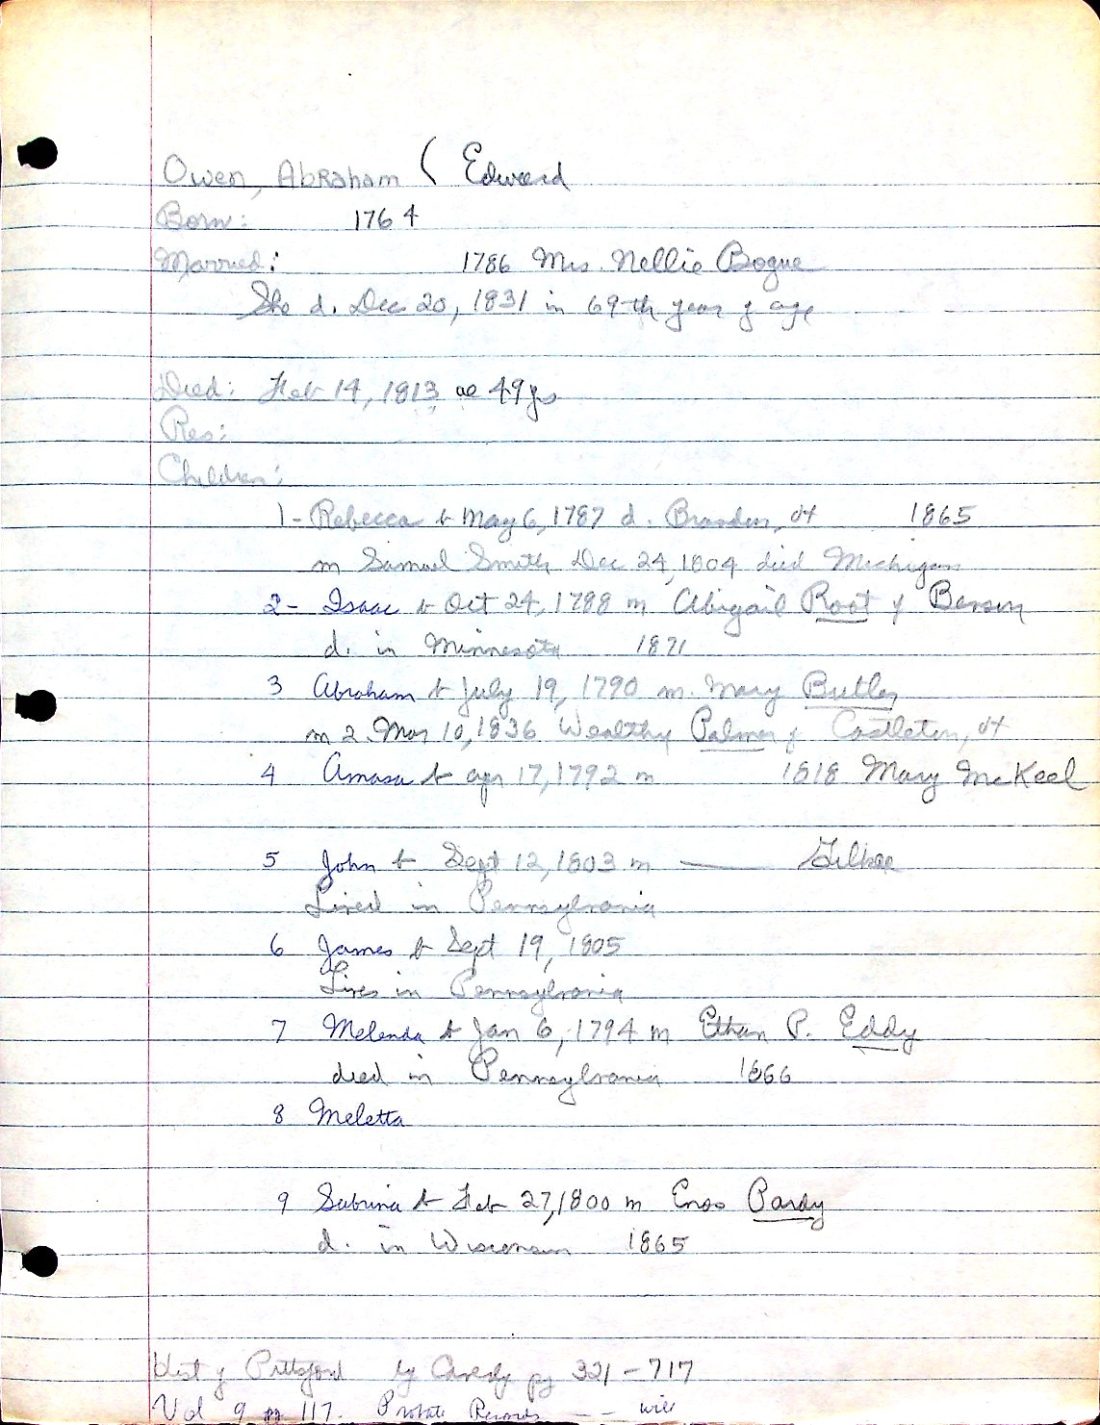 Owen, Abraham ( Edward
Born: 1764
Married: 1786 Mrs. Nellie Bogue
She d. Dec 20, 1831 in 69th year of age
Died: Feb 14, 1813 ae 49 yrs
Res:
Children:
1- Rebecca b May 6, 1787 d. Brandon, Vt 1865
m Samuel Smith Dec 24, 1804 died Michigan
2- Isaac b Oct 24, 1788 m Abigail Root of Benson
d. in Minnesota 1871
3 Abraham b July 19, 1790 m. Mary Butler
m 2. Mar 10, 1836 Wealthy Palmer of Castleton, Vt
4 Amasa b apr 17, 1792 m 1818 Mary McKeel
5 John b Sept 12, 1803 m ——
Lived in Pennsylvania
6 James b Sept 19, 1805
Lives in Pennsylvania
7 Melenda b Jan 6, 1794 m Ethan P. Eddy
died in Pennsylvania 1866
8 Meletta
9 Sabrina b Feb 27, 1800 m Enos Pardy
d. in Wisconsin 1865
Hist of Pittsford by Caverly pg 321 - 717
Vol 9 pg 117. Probate Records -- will